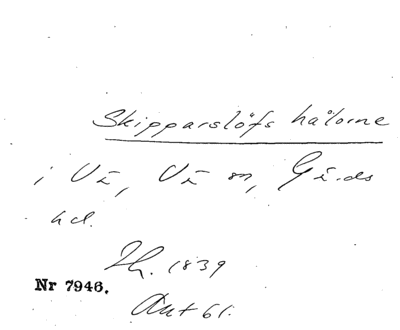 Skipparslöfs hålorne
i Vå, Vå sn, Gä.ds
hd.
Th. 1839
Nr 7946.
Ant 61.